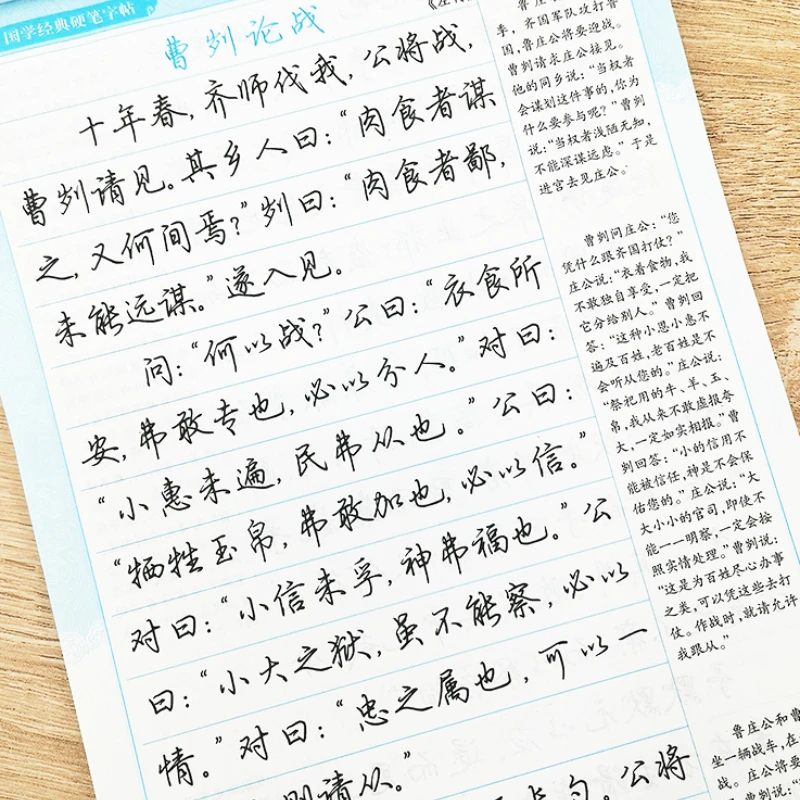 国学经典硬笔字帖
曹刿论战
《左传
十年春，齐师伐我，公将战，
曹刿请见。其乡人曰：“肉食者谋
之，又何间焉？”刿曰：“肉食者鄙，
未能远谋。”遂入见。
问：“何以战？”公曰：“衣食所
安，弗敢专也，必以分人。”对曰：
“小惠未遍，民弗从也。”公曰：
“牺牲玉帛，弗敢加也，必以信。”
对曰：“小信未孚，神弗福也。”公
曰：“小大之狱，虽不能察，必以
情。”对曰：“忠之属也，可以一
则请从。”
公将
季，齐国军队攻打鲁
国，鲁庄公将要迎战。
曹刿请求庄公接见。
他的同乡说：“当权者
会谋划这件事的，你为
什么要参与呢？”曹刿
说：“当权者浅陋无知，
不能深谋远虑。”于是
进宫去见庄公。
曹刿问庄公：“您
凭什么跟齐国打仗？”
庄公说：“衣着食物，我
不敢独自享受，一定把
它分给别人。”曹刿回
答：“这种小恩小惠不
遍及百姓，老百姓是不
会听从您的。”庄公说：
“祭祀用的牛、羊、玉、
帛，我从来不敢虚报夸
大，一定如实相报。”曹
刿回答：“小的信用不
能被信任，神是不会保
佑您的。”庄公说：“大
大小小的官司，即使不
能一一明察，一定会按
照实情处理。”曹刿说：
“这是为百姓尽心办事
之类，可以凭这些去打
仗。作战时，就请允许
我跟从。”
鲁庄公和曹
坐一辆战车，在
战。庄公将要